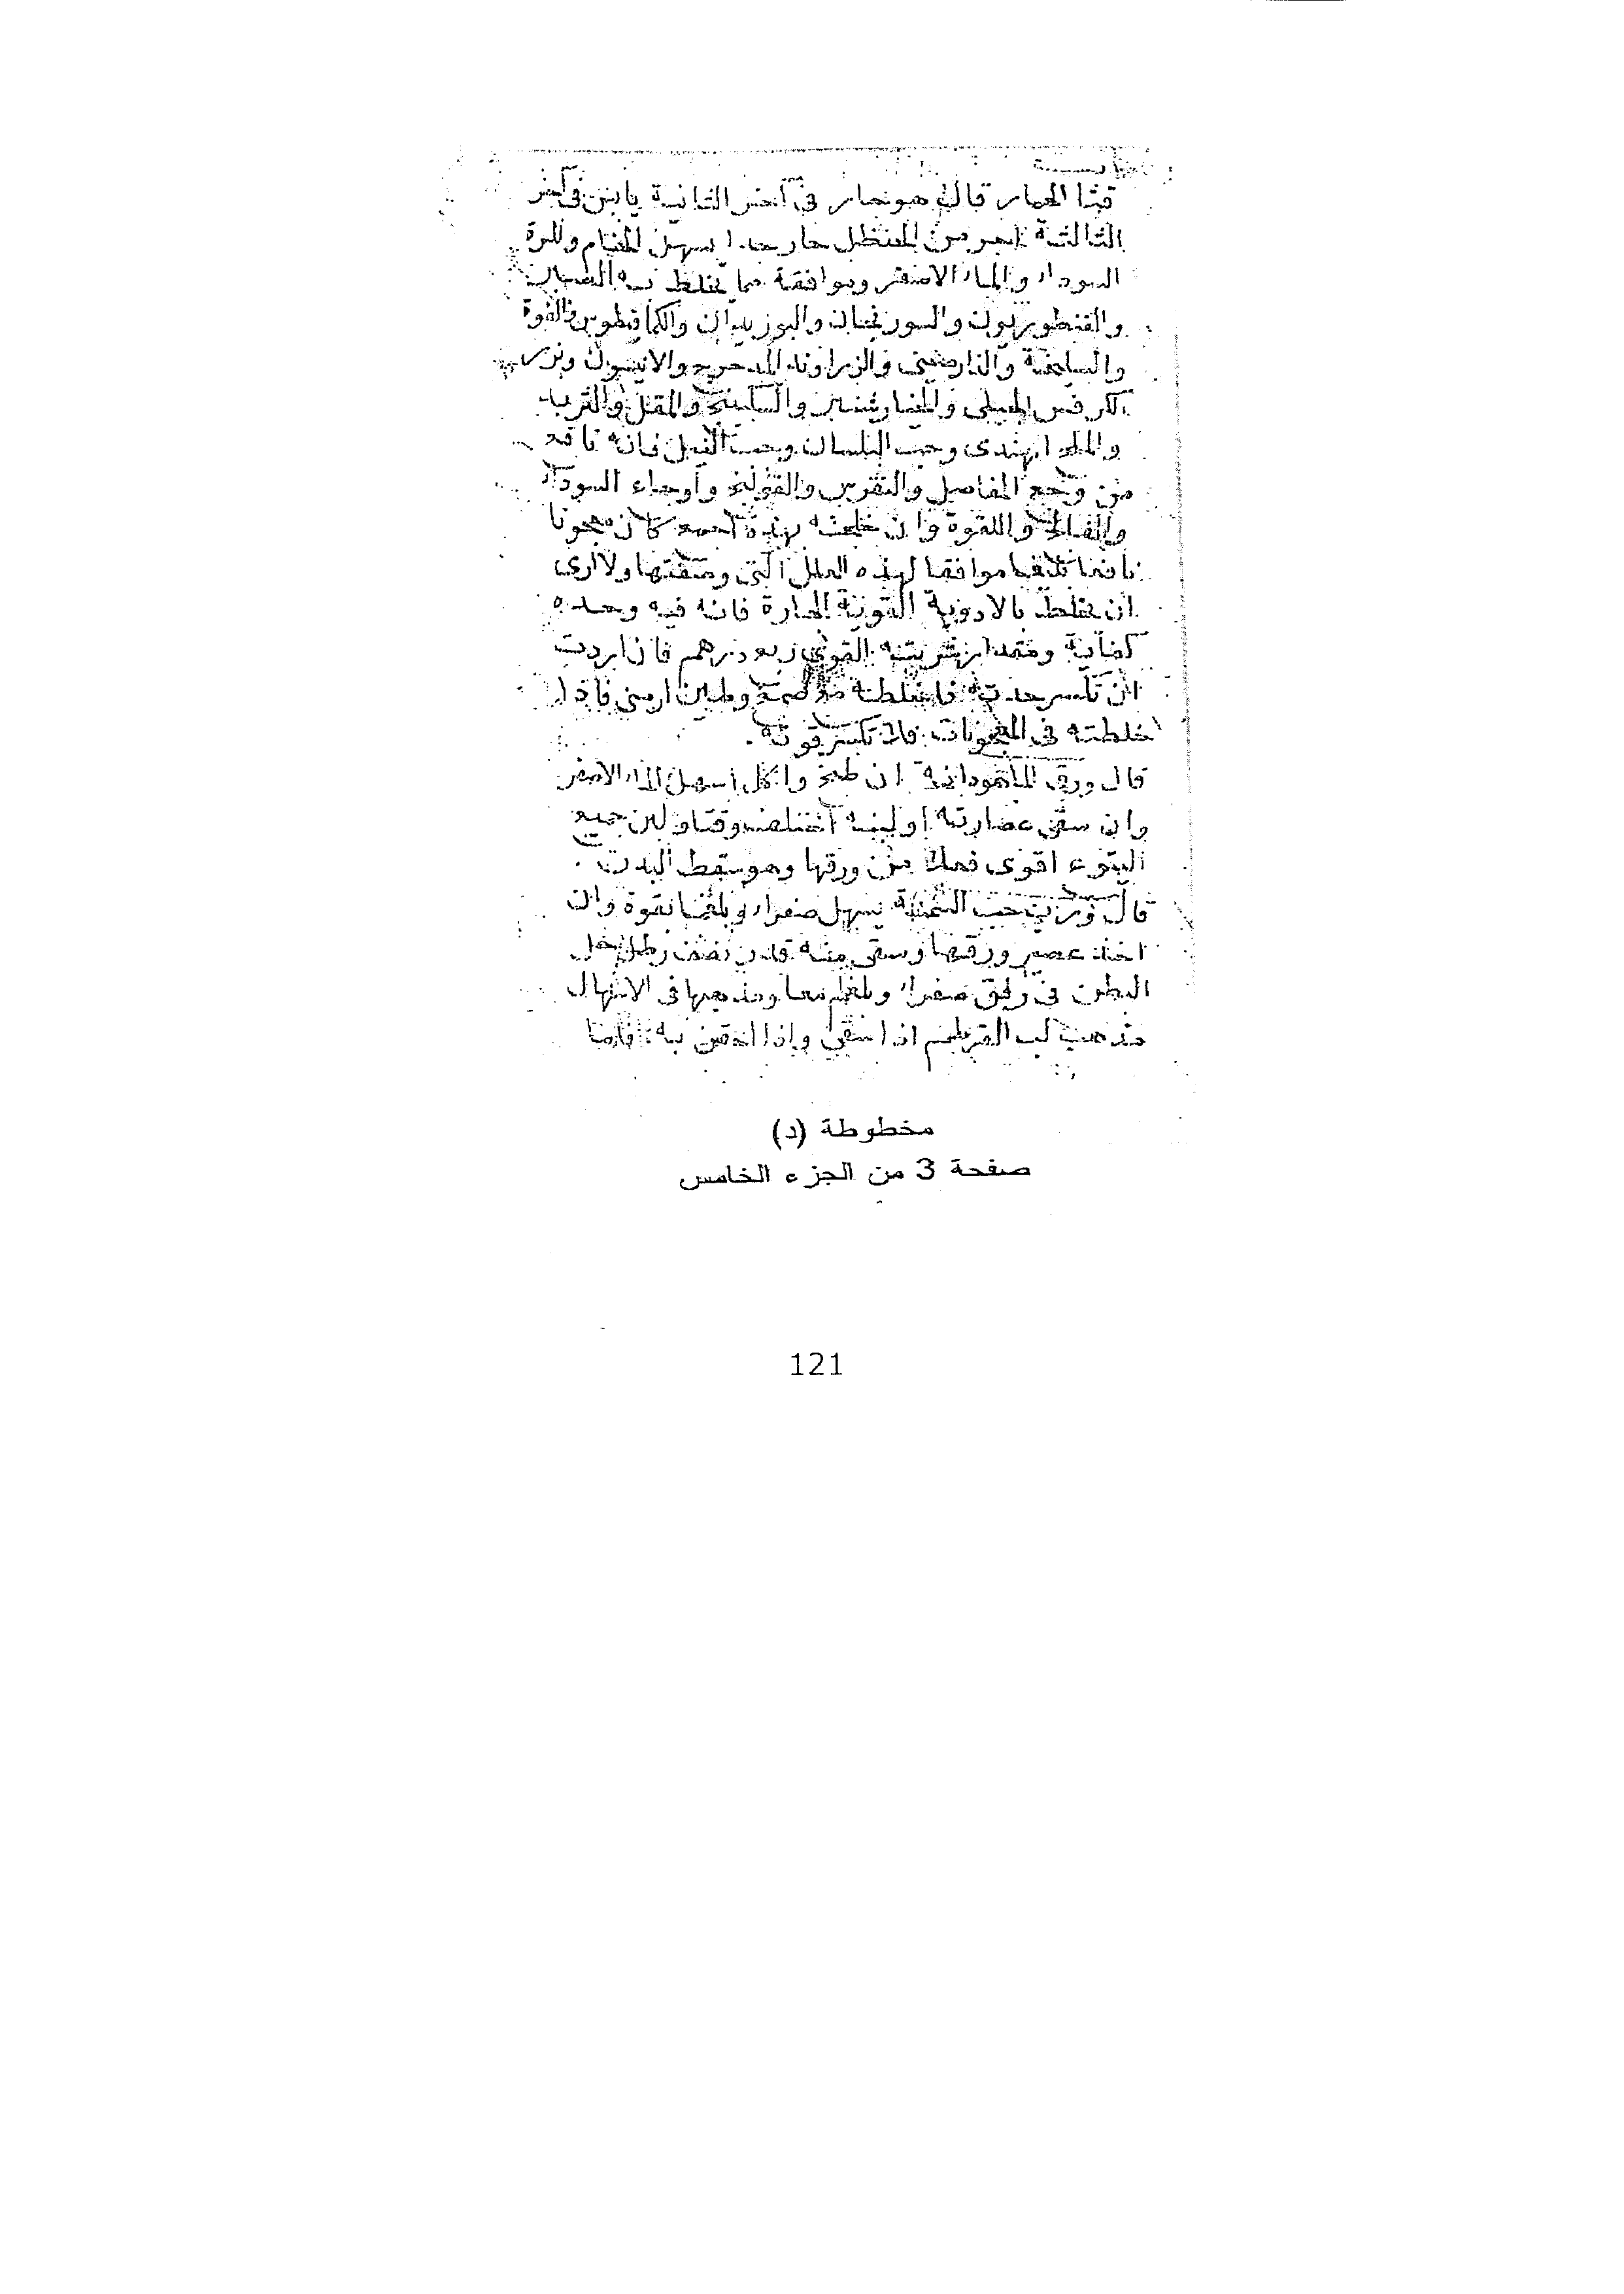 قثا الحمار قال هو حار في آخر الثانية يابس في آخر
الثالثة من الحنظل حار جدا يسهل الخام والمرة
السوداء والماء الاصفر وموافقة مما يخلط به الصبر
والقنطوريون والسورنجان والبوزيدان والكمافيطوس والفوة
والسليخة والدارصيني والزراوند المدحرج والانيسون وبزر
الكرفس الجبلي والخيارشنبر والسكبينج والمقل والتربد
والملح الهندي وحب البلسان وحب النيل فانه نافع
من وجع المفاصل والنقرس والقولنج وأوجاع السوداء
والفالج واللقوة وان خلطته بهذه كان معجونا
نافعا موافقا لهذه العلل التي وصفتها ولا ارى
ان يخلط بالادوية القوية الحارة فانه فيه وحده
كفاية ومقدار شربته القوي ربع درهم فان اردت
ان تكسر حدته فاخلطه وطين ارمني فاذا
خلطته في المعجونات فلا تكسر قوته.
قال ورق الماهودانه ان طبخ واكل اسهل الماء الاصفر
وان سقى عصارته او لبنه اختلف وقتا ولبن جميع
اليتوع اقوى فعلا من ورقها وهو يسقط البدن.
قال وزيت حب السمنة يسهل صفراء وبلغما بقوة وان
اخذ عصير ورقها وسقى منه قدر نصف رطل حل
البطن في رفق صفراء وبلغما معا ومذهبها في الاسهال
مذهب لب القرطم اذا سقى واذا احتقن به فاما
مخطوطة (د)
صفحة 3 من الجزء الخامس
121